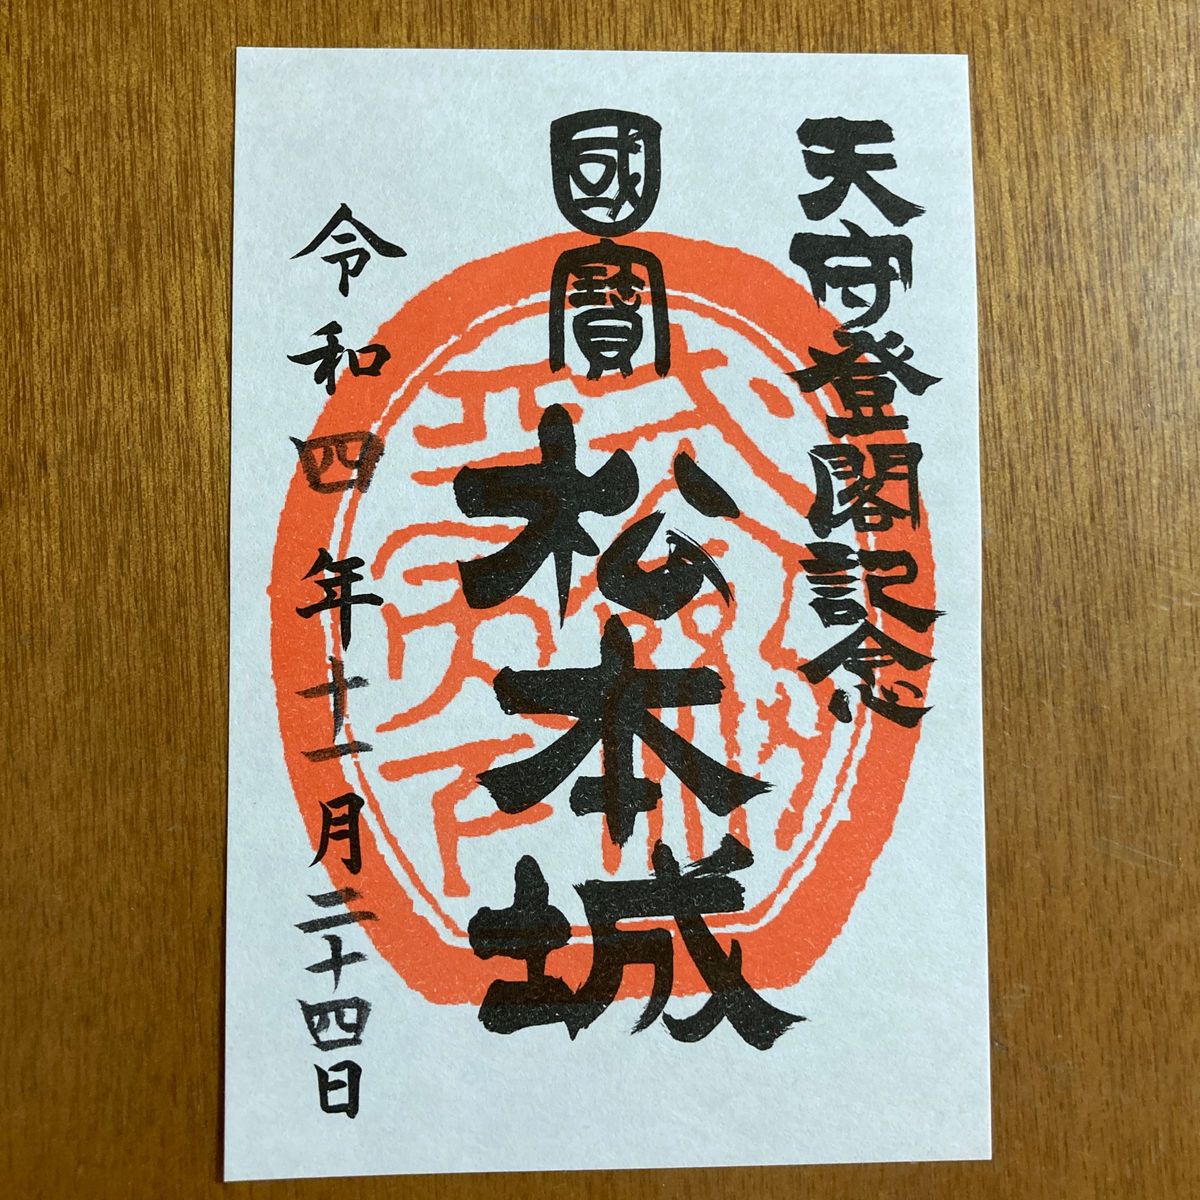 天守登閣記念
國寳
松本城
令和四年十一月二十四日